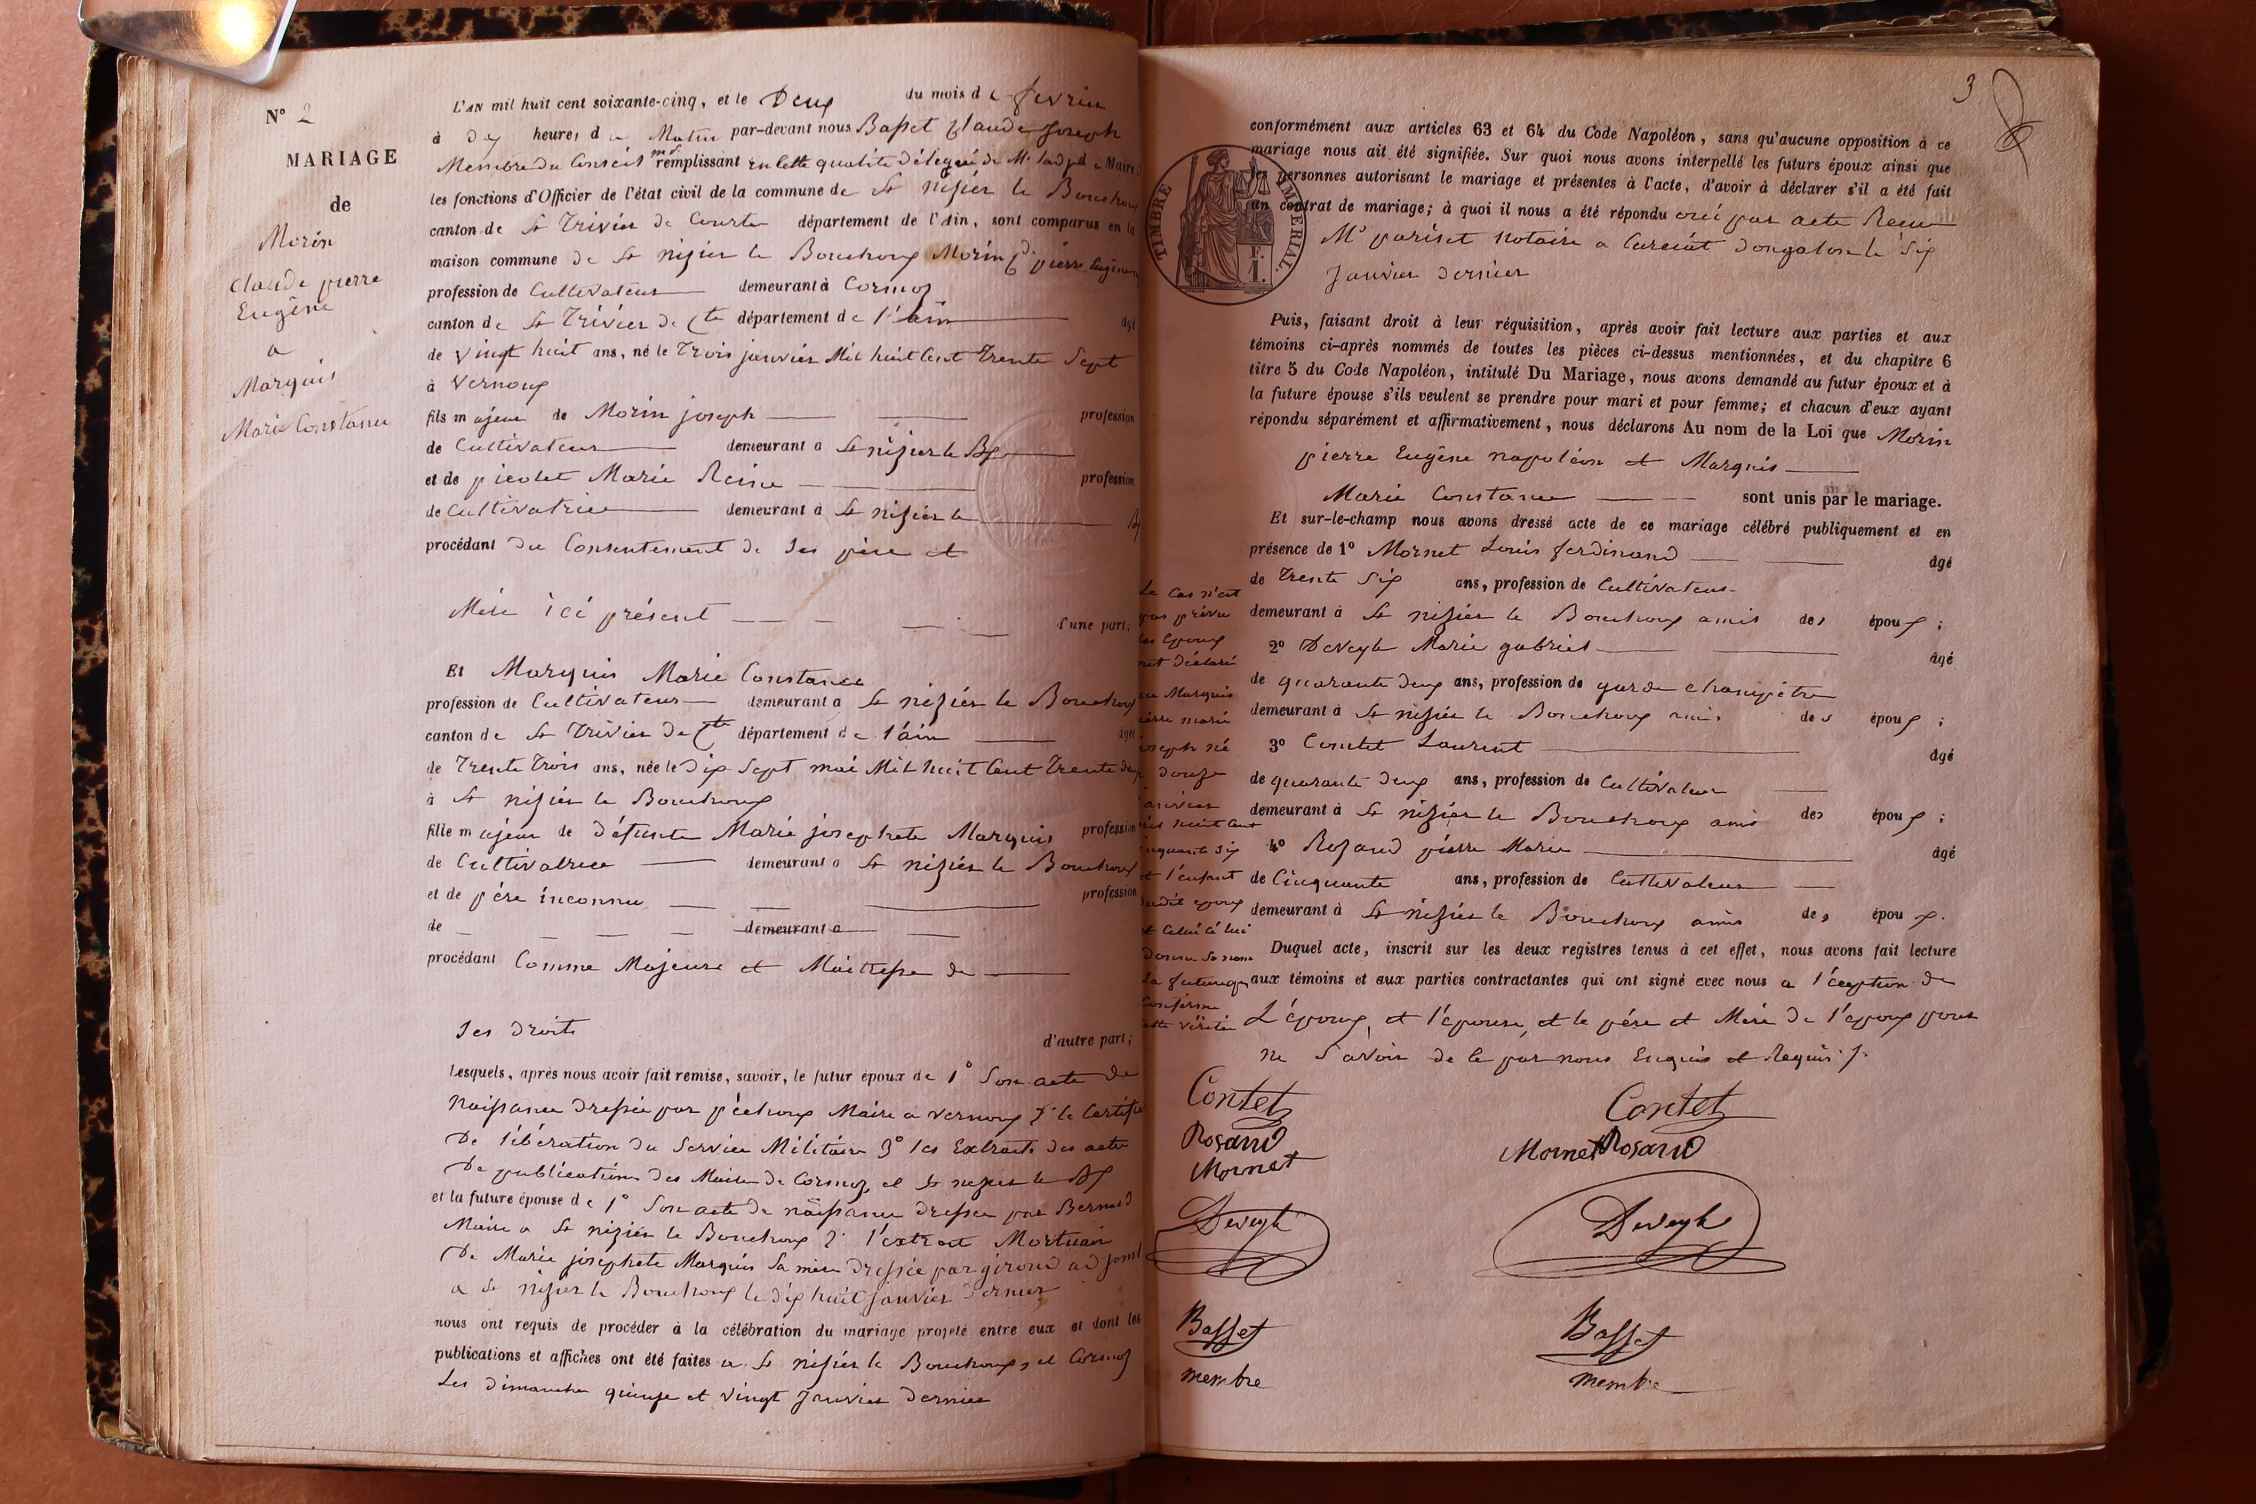 N° 2
MARIAGE
de
Morin
Claude pierre
Eugène
a
Marquis
Marie Constance
L'AN mil huit cent soixante-cinq, et le Deux du mois de fevrier
à dix heures du Matin par-devant nous Basset Claude Joseph
Membre du Conseil mpal remplissant en cette qualité délégué de Mr le Maire
les fonctions d'Officier de l'état civil de la commune de St nizier le Bouchoux
canton de St Trivier de Courtes département de l'Ain, sont comparus en la
maison commune de St nizier le Bouchoux Morin Cde pierre Eugène
profession de Cultivateur demeurant à Cormoz
canton de St Trivier de Ctes département de l'ain âgé
de vingt huit ans, né le Trois janvier Mil huit Cent Trente Sept
à Vernoux
fils majeur de Morin joseph profession
de Cultivateur demeurant à St nizier le Bx
et de picolet Marie Reine profession
de Cultivatrice demeurant à St nizier le Bx
procédant du Consentement de Ses père et
Mère ici présent d'une part;
Et Marquis Marie Constance
profession de Cultivateur demeurant à St nizier le Bouchoux
canton de St Trivier de Ctes département de l'ain âgée
de Trente Trois ans, née le Dix Sept mai Mil huit Cent Trente deux
à St nizier le Bouchoux
fille majeur de défunte Marie josephete Marquis profession
de Cultivatrice demeurant à St nizier le Bouchoux
et de père inconnu profession
de demeurant a
procédant Comme Majeure et Maitresse de
Ses droits
d'autre part;
Lesquels, après nous avoir fait remise, savoir, le futur époux de 1° Son acte de
naissance dressée par péchoux Maire a vernoux 2° le Certificat
De libération du Service Militaire 3° les Extraits des actes
De publications des Maires de Cormoz et St nizier le Bx
et la future épouse de 1° Son acte de naissance dressée par Bernard
Maire a St nizier le Bouchoux 2° l'extrait Mortuaire
De Marie josephete Marquis Sa mère dressée par giroud adjoint
a St nizier le Bouchoux le dix huit janvier Dernier
nous ont requis de procéder à la célébration du mariage projeté entre eux et dont les
publications et affiches ont été faites a St nizier le Bouchoux, et Cormoz
Les dimanches quinze et vingt Janvier dernier
3
conformément aux articles 63 et 64 du Code Napoléon, sans qu'aucune opposition à ce
mariage nous ait été signifiée. Sur quoi nous avons interpellé les futurs époux ainsi que
les personnes autorisant le mariage et présentes à l'acte, d'avoir à déclarer s'il a été fait
un contrat de mariage; à quoi il nous a été répondu oui par acte Recu
Mr pariset notaire a Curciat dongalon le Six
Janvier dernier
TIMBRE IMPERIAL
F.
1.
Puis, faisant droit à leur réquisition, après avoir fait lecture aux parties et aux
témoins ci-après nommés de toutes les pièces ci-dessus mentionnées, et du chapitre 6
titre 5 du Code Napoléon, intitulé Du Mariage, nous avons demandé au futur époux et à
la future épouse s'ils veulent se prendre pour mari et pour femme; et chacun d'eux ayant
répondu séparément et affirmativement, nous déclarons Au nom de la Loi que Morin
pierre Eugène napoléon et Marquis
Marie Constance sont unis par le mariage.
Et sur-le-champ nous avons dressé acte de ce mariage célébré publiquement et en
présence de 1° Mornet Louis ferdinand âgé
de Trente Six ans, profession de Cultivateur
demeurant à St nizier le Bouchoux amis des époux;
2° Deveyle Marie gabriel âgé
de quarante deux ans, profession de garde champêtre
demeurant à St nizier le Bouchoux amis des époux;
3° Contet Laurent âgé
de quarante deux ans, profession de Cultivateur
demeurant à St nizier le Bouchoux amis des époux;
4° Rozand pierre Marie âgé
de Cinquante ans, profession de Cultivateur
demeurant à St nizier le Bouchoux amis des époux.
Duquel acte, inscrit sur les deux registres tenus à cet effet, nous avons fait lecture
aux témoins et aux parties contractantes qui ont signé avec nous a l'éception de
L'époux, et l'épouse, et le père et Mère de l'époux pour
ne Savoir de le par nous Enquis et Requis
Le Cas n'est
pas prévu
les époux
ont déclaré
que Marquis
pierre marie
joseph né
le douze
janvier
mil huit Cent
Cinquante Six
est l'enfant
dudit époux
et Celui ci lui
donne Son nom
la future
Confirme
cette vérité
Contet
Rosand
Mornet
Deveyle
Basset
membre
Contet
Mornet Rosand
Deveyle
Basset
membre